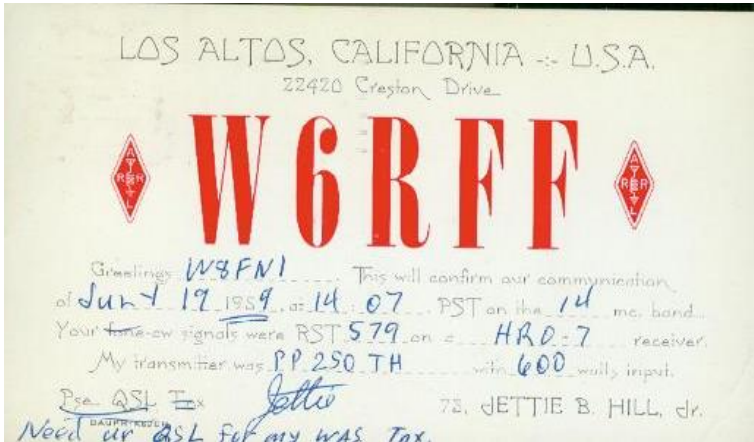 LOS ALTOS, CALIFORNIA -:- U.S.A.
22420 Creston Drive
W6RFF
A R R L
A R R L
Greetings W8FNI This will confirm our communication
of JUNY 19 1959, at 14:07 PST on the 14 mc. band
Your fone-cw signals were RST 579 on a HRO-7 receiver.
My transmitter was PP 250 TH with 600 watts input.
Pse QSL Tx Jettie 73, JETTIE B. HILL, Jr.
Need ur QSL for my WAS Tnx.